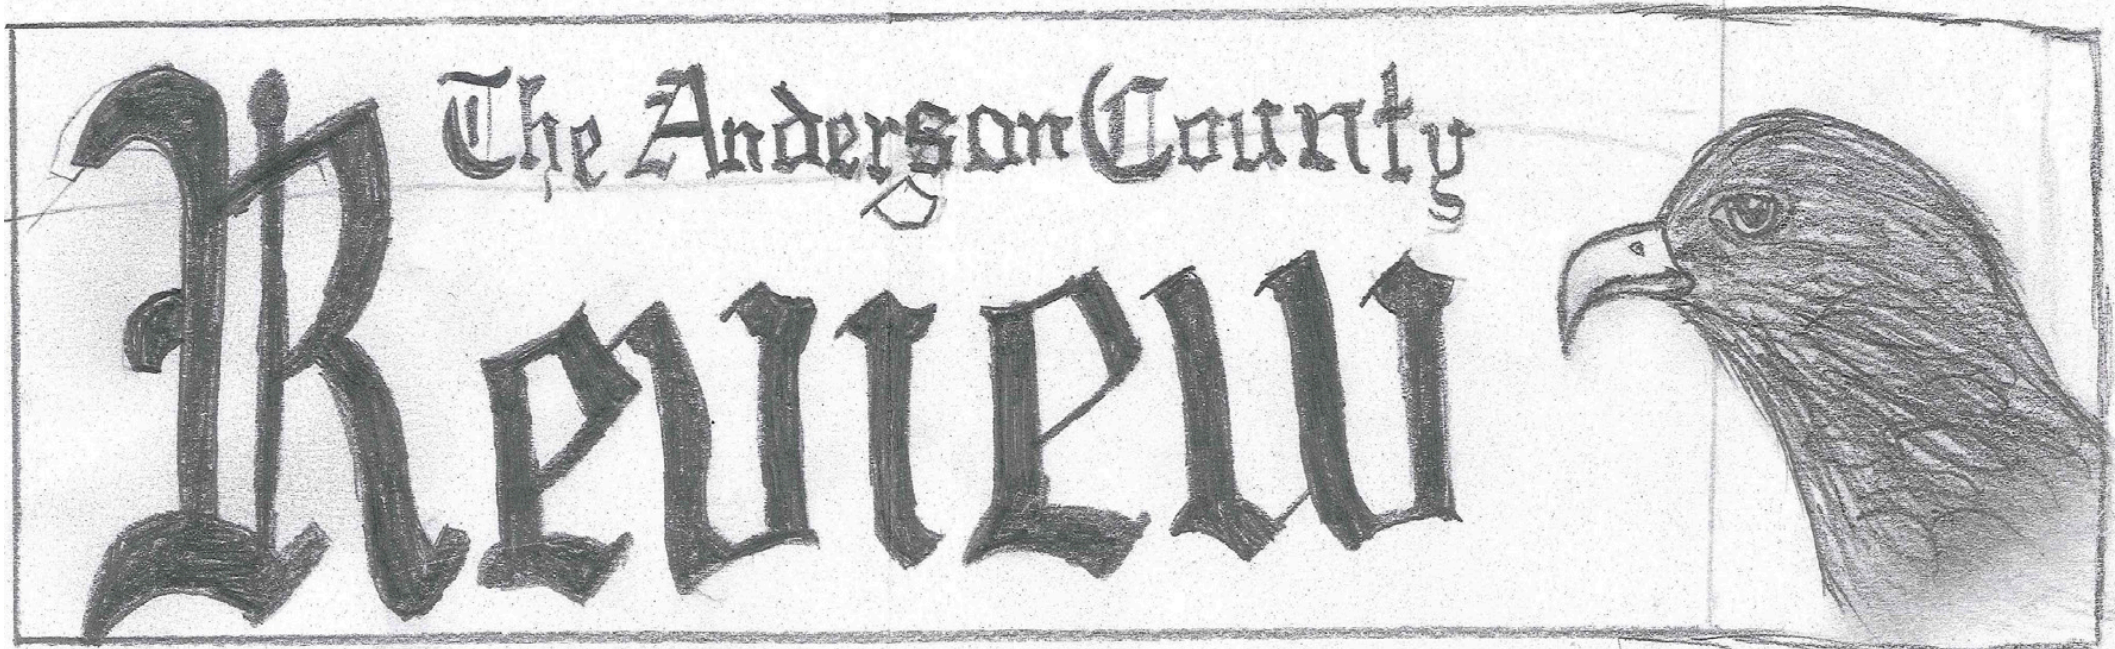 The Anderson County
Review